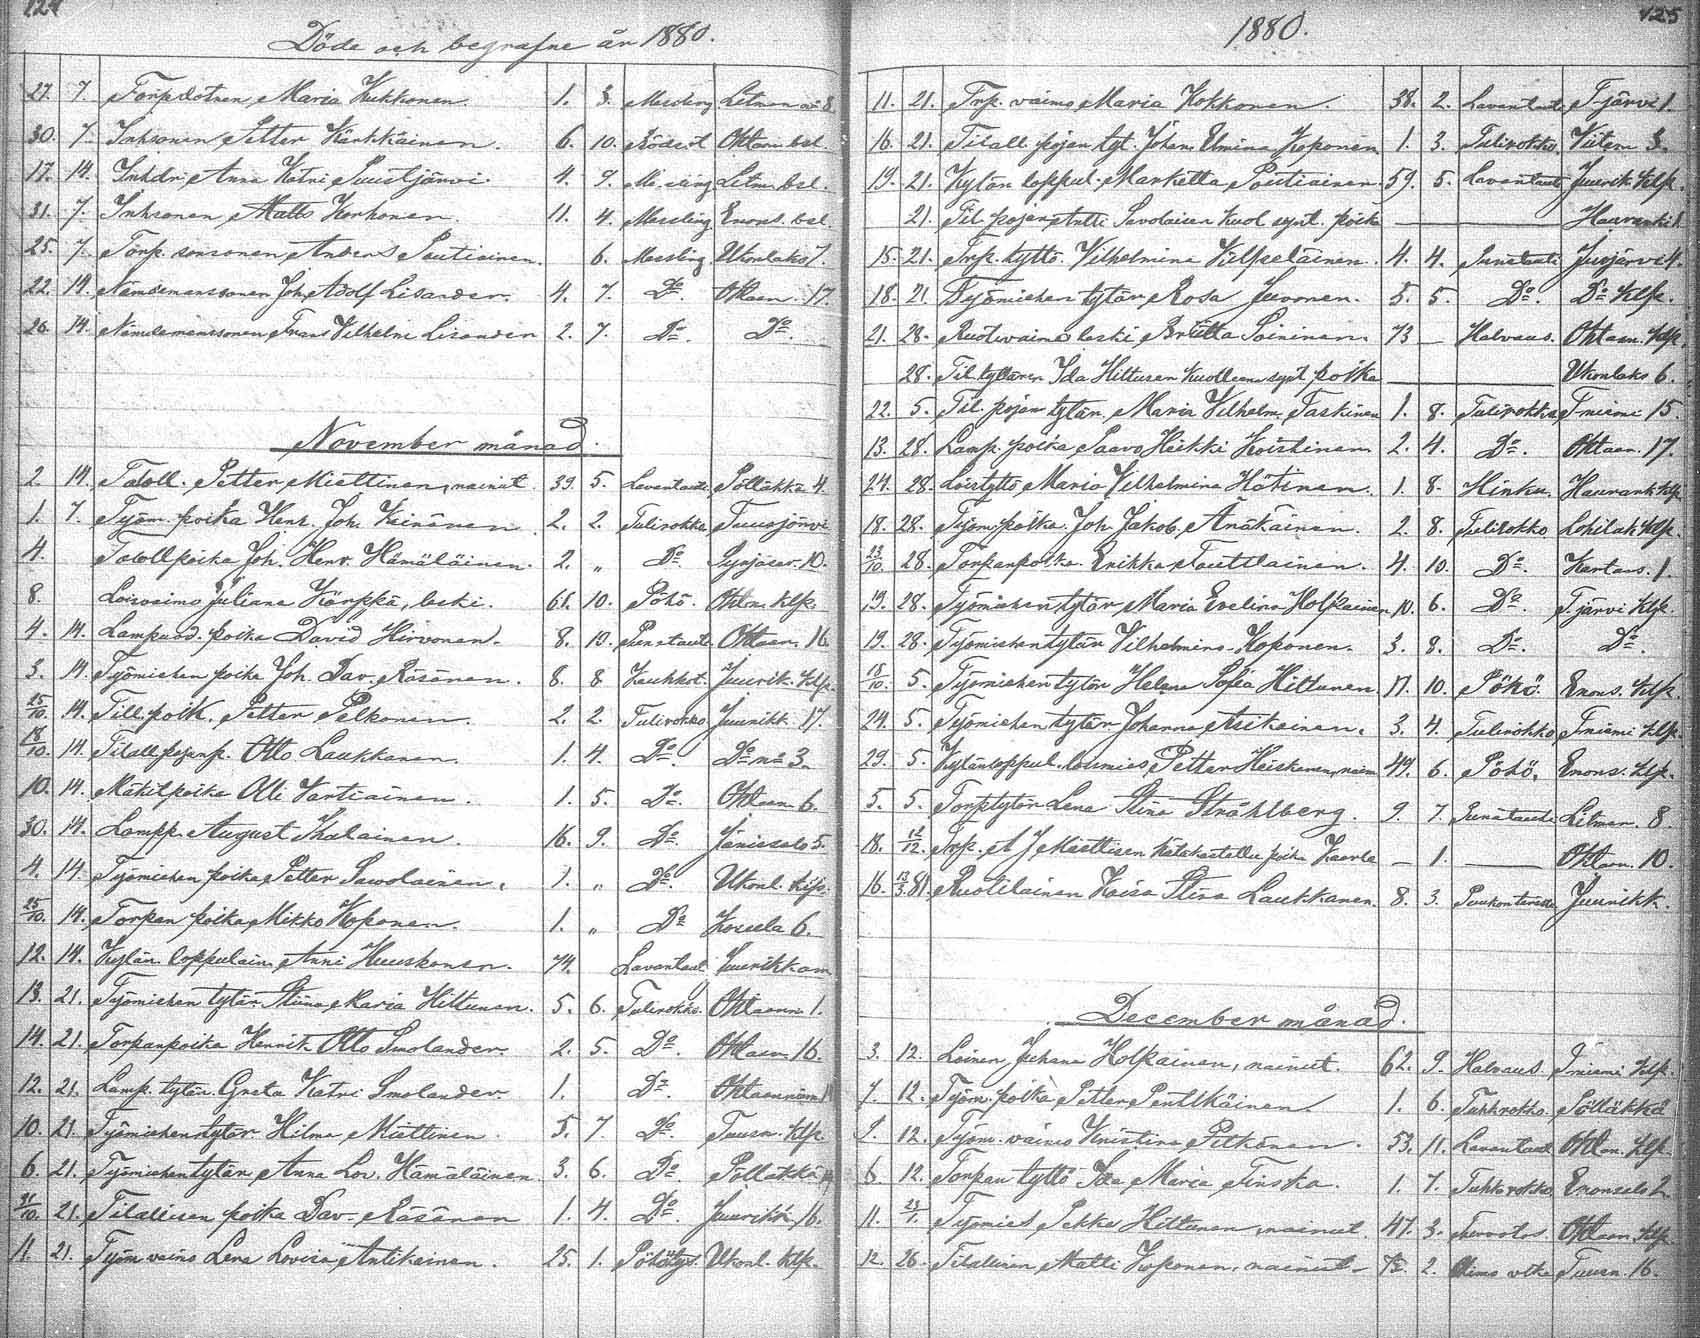 124
Döde och begrafne år 1880.
27. 7. Torpdotren Maria Kukkonen. 1. 3. Messling 8
30. 7. Inhsonen Petter Kärkkäinen. 6. 10. Rödsot Oktaan. bsl.
17. 14. Inhdr. Anna Katri Suustjärvi. 4. 9. Messling bsl.
31. 7. Inhsonen Matts Korhonen. 11. 4. Messling Enons. bsl.
25. 7. Torp. sonsonen Anders Poutiainen. 6. Messling Ukonlaks 7.
22. 14. Nämdemanssonen Joh. Adolf Lisander. 4. 7. Do. Oktaan. 17.
26. 14. Nämdemanssonen Frans Vilhelm Lisander 2. 7. Do. Do.
November månad.
2. 14. Petter Miettinen, nainut. 39. 5. Lavantauti Pölläkkä 4.
1. 7. Työm. poika Henr. Joh. Keinänen 2. 2. Tulirokko Tuusjärvi
4. poika Joh. Henr. Hämäläinen. 2. " Do Syrjäsar. 10.
8. Loisvaimo Juliana Kärppä, leski. 61. 10. Pöhö. Oktan. klp.
4. 14. Lampuod. poika David Hirvonen. 8. 10. Punataut. Oktaan. 16.
3. 14. Työmiehen poika Joh. Dav. Räsänen. 8. 8. Juurik. klp.
25/10. 14. Till. poik. Petter Pelkonen. 2. 2. Tulirokko Juurikk. 17.
18/10. 14. Tilall. pojanp. Otto Laukkanen. 1. 4. Do. Do no 3.
10. 14. Mäkit. poika Olli Vartiainen. 1. 5. Do. Oktaan. 6.
30. 14. Lampp. August Ikalainen. 16. 9. Do. Jänissalo 5.
4. 14. Työmiehen poika Petter Sawolainen. 1. " Do. Ukonl.
25/10. 14. Torpan poika Mikko Koponen. 1. " Do 6.
12. 14. Kylän loppulain. Anni Huuskonen. 74. Lavantaut.
13. 21. Työmiehen tytär Stiina Maria Hiltunen. 5. 6. Tulirokko. Oktaann. 1.
14. 21. Torpanpoika Henrik Otto Smolander. 2. 5. Do. Oktaan. 16.
12. 21. Lamp. tytär. Greta Katri Smolander. 1. Do.
10. 21. Työmiehen tytär Hilma Miettinen. 5. 7. Do. Tuusn. klp.
6. 21. Työmiehen tytär. Anna Lov. Hämäläinen. 3. 6. Do. Pölläkkä
31/10. 21. Tilallisen poika Dav. Räsänen 1. 4. Do. Juurikk. 16.
11. 21. Työm. vaimo Lena Lovisa Antikainen. 25. 1. Ukonl. klp.
1880.
125
11. 21. Trp. vaimo Maria Kokkonen. 38. 2. Lavantauti T-järvi 1.
16. 21. Tilall. pojan tyt. Johan. Elmina Koponen 1. 3. Tulirokko. 3.
19. 21. Kylän loppul. Marketta Poutiainen. 59. 5. Lavantauti Juurik. klp.
21. Til. pojan Antti Savolaisen kuol. synt. poika
15. 21. Trp. tyttö. Vilhelmina Kilpeläinen. 4. 4. Punataut. 4.
18. 21. Työmiehen tytär Rosa Juvonen. 5. 5. Do. Do klp.
21. 28. Ruotivaimo leski Britta Soininen. 73 — Halvaus. Oktaan. klp.
28. Til. tyttären Ida Hiltusen kuolleena synt. poika Ukonlaks 6.
22. 5. Til. pojan tytär, Maria Vilhelm. Taskinen 1. 8. Tulirokko T-niemi 15.
13. 28. Lamp. poika Paavo Heikki Koistinen 2. 4. Do. Oktaan. 17.
24. 28. Loistyttö Maria Vilhelmina Hötinen. 1. 8. Hinku. klp.
18. 28. Työm. poika. Joh. Jakob. Änäkäinen. 2. 8. Tulirokko klp.
23/10. 28. Torpanpoika. Erikka Tauttlainen. 4. 10. Do. 1.
19. 28. Työmiehen tytär Maria Evelina Holpainen 10. 6. Do. T-järvi klp.
19. 28. Työmiehen tytär Vilhelmina Koponen. 3. 8. Do. Do.
18/10. 5. Työmiehen tytär Helena Sofia Hiltunen 17. 10. Pöhö. Enons. klp.
24. 5. Työmiehen tytär Johanna Asikainen. 3. 4. Tulirokko T-niemi klp.
29. 5. Kylänloppul. Petter Heiskanen, nain. 49. 6. Pöhö. Enons. klp.
5. 5. Torp. tytär Lena Stina Stråhlberg. 9. 7. Punataut. 8.
18. 12/12. Trp. A J Miettisen hätäkastettu poika Kaarle — 1. Oktaan. 10.
16. 13/3.81. Ruotilainen Kaisa Stina Laukkanen. 8. 3. Juurikk.
December månad.
3. 12. Loinen Juhana Holpainen, nainut. 62. 9. Halvaus. T-niemi klp.
7. 12. Työm. poika Petter Penttkäinen. 1. 6. Tuhkrokko. Pölläkkä
9. 12. Työm. vaimo Kristina Pitkänen. 53. 11. Lavantaut. Oktan. klp.
6. 12. Torpan tyttö Ida Maria Tirska. 1. 7. Tuhkrokko. Enonsalo 2
11. 23/1. Työmies Pekka Hiltunen, nainut. 47. 3. Oktaan. klp.
12. 26. Tilallinen Matti Koponen, nainut. 2. Tuusn. 16.